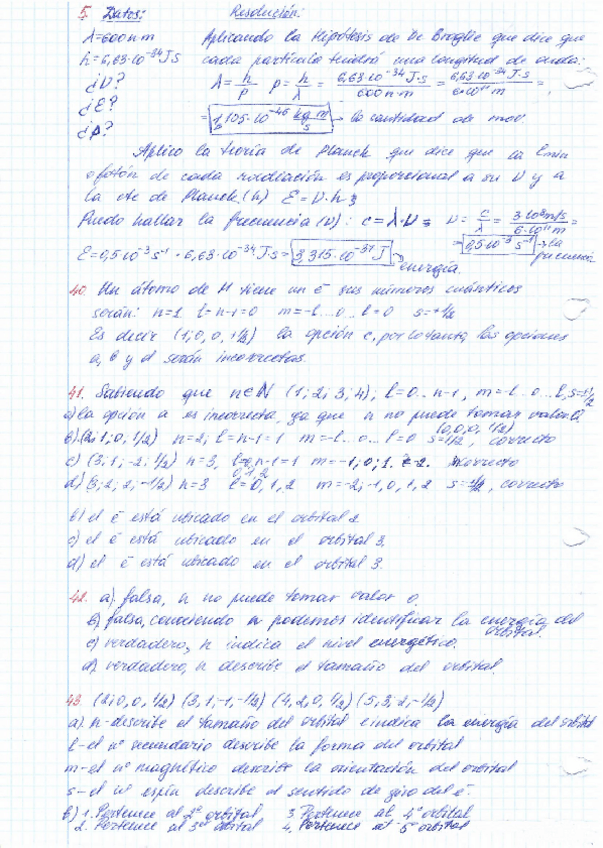 5. Datos: Resolución:
λ=600nm Aplicando la Hipótesis de De Broglie que dice que
h=6,63·10⁻³⁴Js cada partícula tendrá una longitud de onda:
¿ν? λ=h/p p=h/λ = 6,63·10⁻³⁴J·s/600n·m = 6,63·10⁻³⁴J·s/6·10¹¹m =
¿E?
¿p? = 1,105·10⁻⁴⁶ kg·m/s → la cantidad de mov.
Aplico la teoría de Planck que dice que la Emin
o fotón de cada radiación es proporcional a su ν y a
la cte de Planck(h) E=ν·h
Puedo hallar la frecuencia (ν): c=λ·ν ν=c/λ=3·10⁸m/s/6·10¹¹m=
E=0,5·10⁻³s⁻¹·6,63·10⁻³⁴Js=3,315·10⁻³⁷J → energía. =0,5·10⁻³s⁻¹ → la frecuencia
40. Un átomo de H tiene un é sus números cuánticos
serán: n=1 l=n-1=0 m=-l...0...l=0 s=+1/2
Es decir (1;0,0,+1/2) la opción c, por lo tanto, las opciones
a, b y d serán incorrectas.
41. Sabiendo que n∈N (1;2;3;4); l=0..n-1, m=-l..0..l, s=±1/2
a) la opción a es incorrecta, ya que n no puede tomar valor 0.
(0,0,0,1/2)
b) (2;1;0,1/2) n=2; l=n-1=1 m=-l..0..l=0 s=1/2, correcto
c) (3;1;-2;1/2) n=3, l=n-1=1 m=-1;0;1.
0,1,2
d) (3;2;2;-1/2) n=3 l=0,1,2 m=-2;-1,0,1,2 s=-1/2, correcto
b) el é está ubicado en el orbital 2.
c) el é está ubicado en el orbital 3.
d) el é está ubicado en el orbital 3.
42. a) falsa, n no puede tomar valor 0.
b) falsa, conociendo n podemos identificar la energía del
orbital.
c) verdadero, n indica el nivel energético.
d) verdadero, n describe el tamaño del orbital.
43. (2;0,0,1/2) (3,1,-1,-1/2) (4,2,0,1/2) (5,3,2,-1/2)
a) n-describe el tamaño del orbital e indica la energía del orbital
l-el nº secundario describe la forma del orbital
m-el nº magnético describe la orientación del orbital
s-el nº espín describe el sentido de giro del é.
b) 1. Pertence al 2º orbital 3. Pertence al 4º orbital
2. Pertence al 3er orbital 4. Pertence al 5º orbital